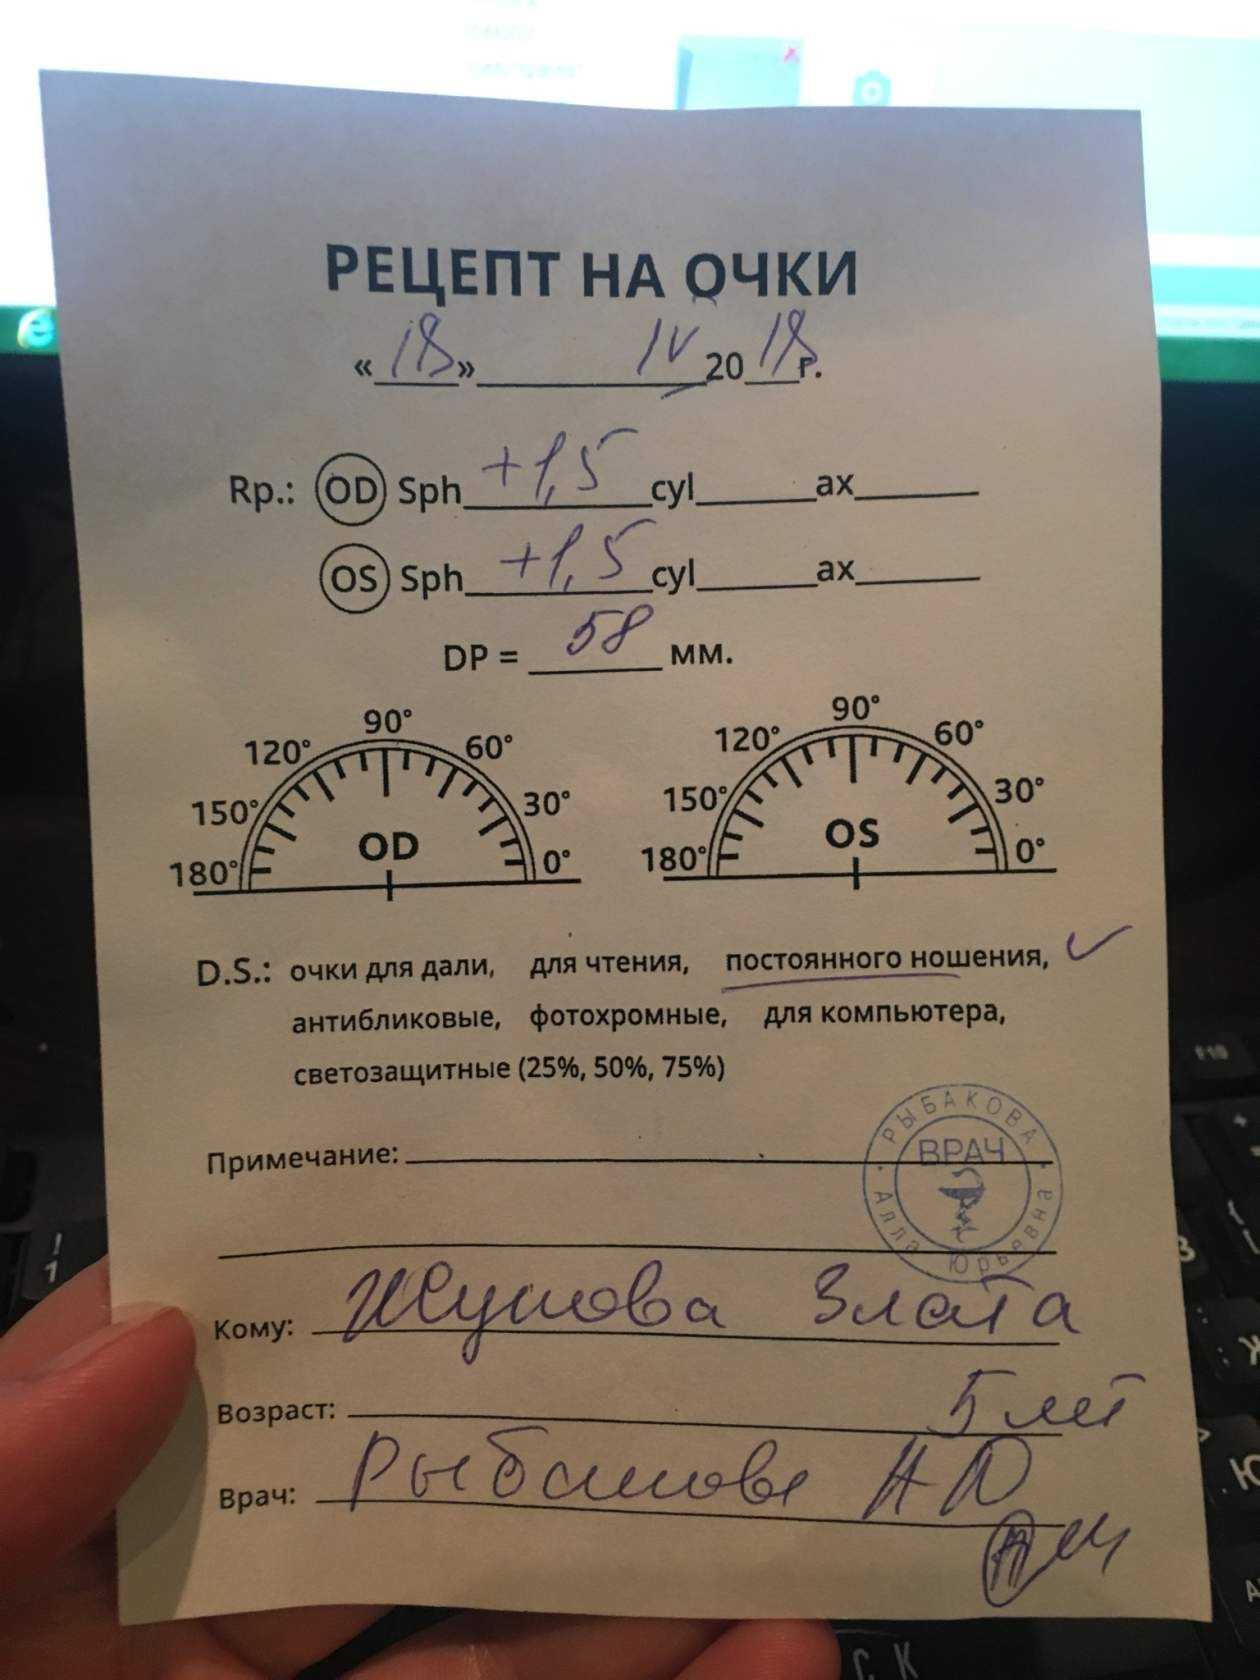 РЕЦЕПТ НА ОЧКИ
«18» IV 2018 г.
Rp.: OD Sph +1,5 cyl ax
OS Sph +1,5 cyl ax
DP = 58 мм.
90° 90°
120° 60° 120° 60°
150° 30° 150° 30°
OD OS
180° 0° 180° 0°
D.S.: очки для дали, для чтения, постоянного ношения,
антибликовые, фотохромные, для компьютера,
светозащитные (25%, 50%, 75%)
РЫБАКОВА
ВРАЧ
Алла Юрьевна
Примечание:
Кому: Злата
Возраст: 5 лет
Врач: Рыбакова АЮ
F10
!
1
З
Ж
Ю
С К